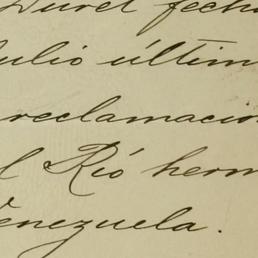 Duret fech
Julio últim
reclamacio
l Rió herm
Venezuela.